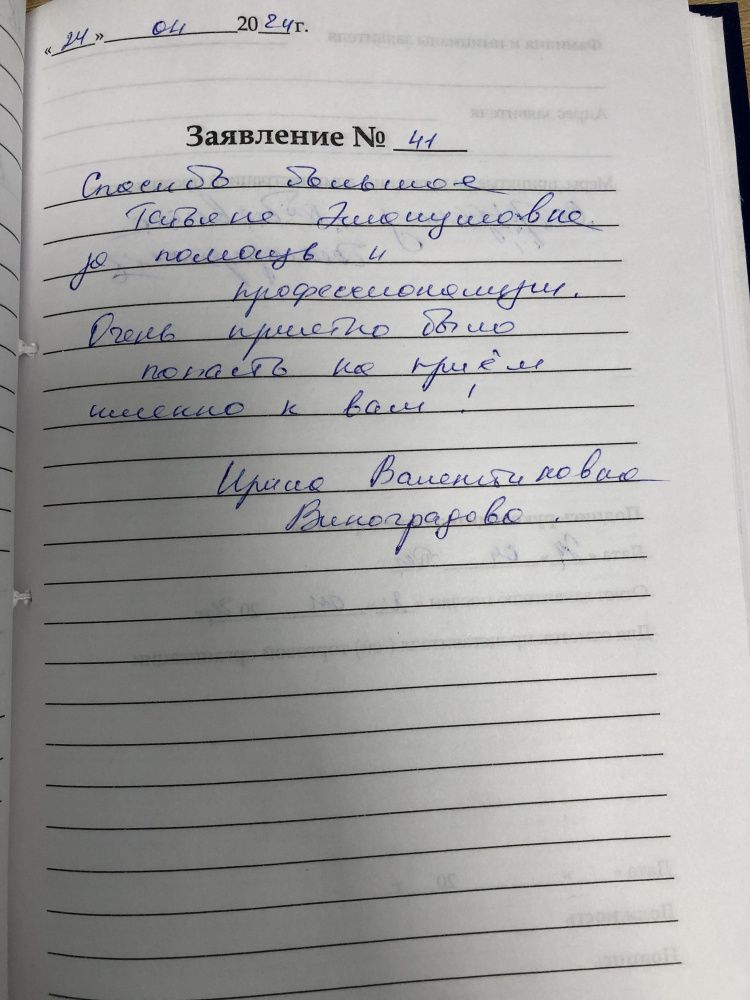 «24» 04 2024г.
Заявление № 41
Спасибо большое
Татьяне Эмануиловне
за помощь и
профессионализм.
Очень приятно было
попасть на приём
именно к вам!
Ирина Валентиновна
Виноградова.